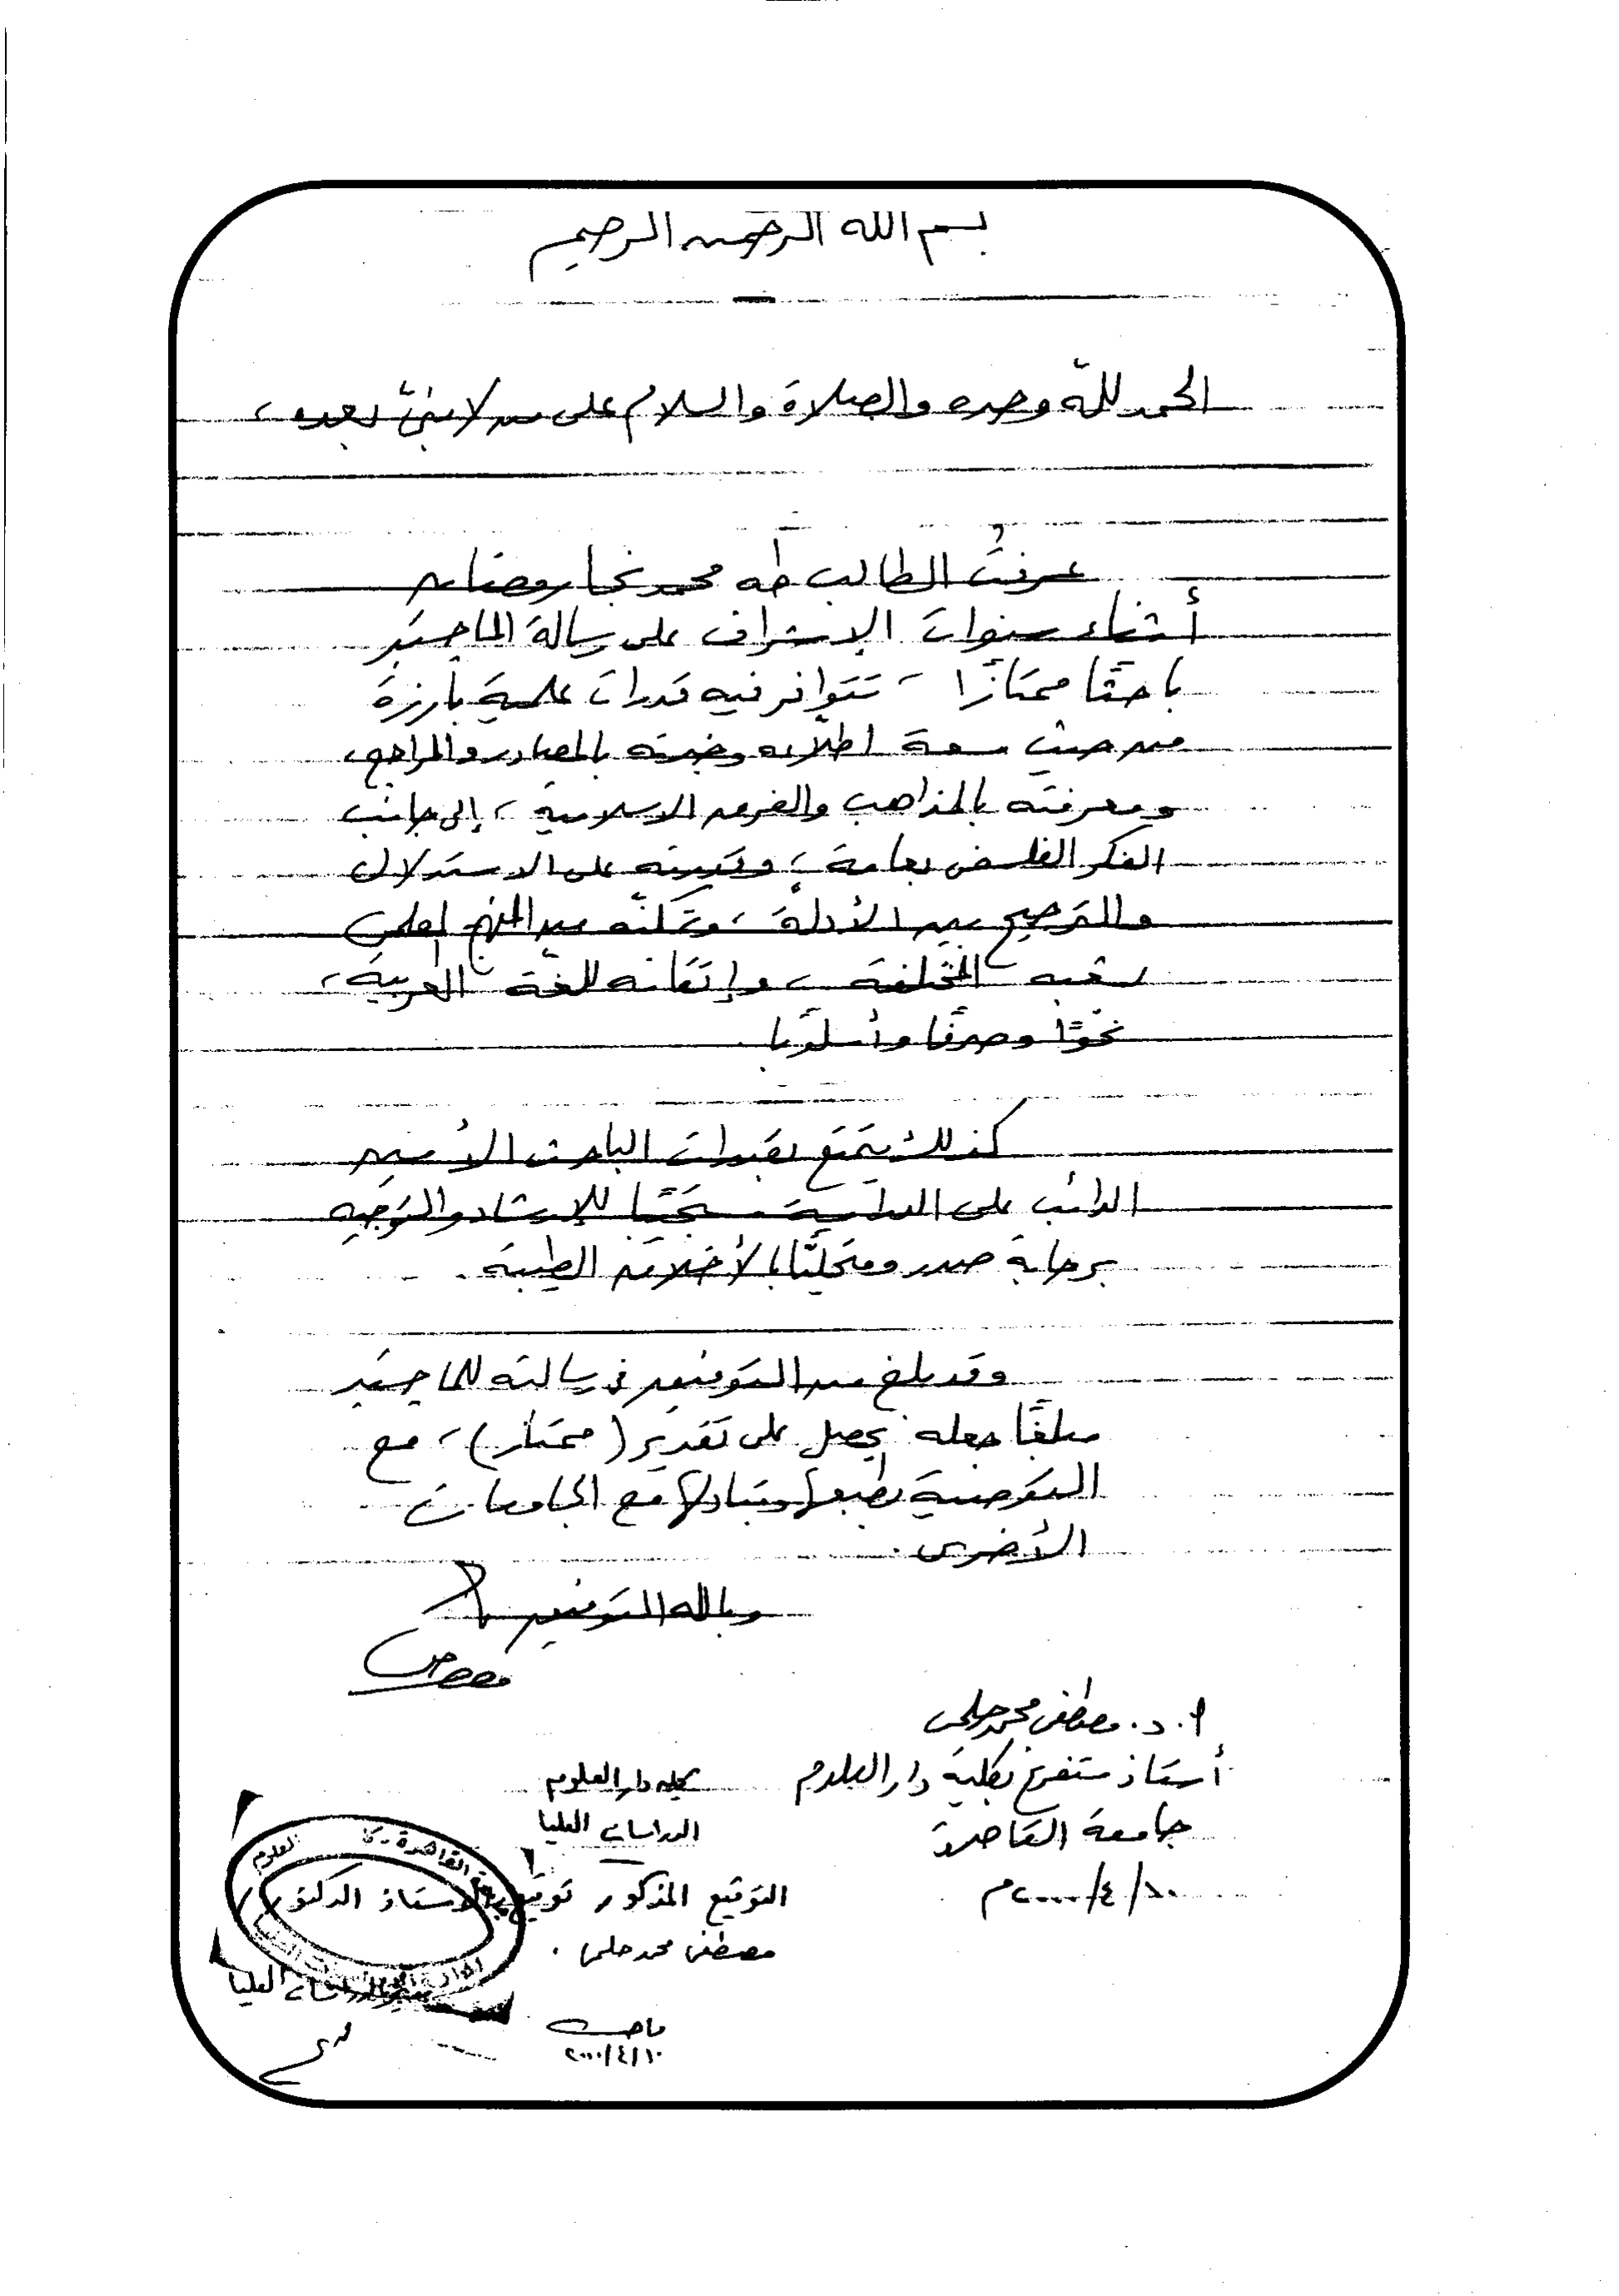 بسم الله الرحمن الرحيم
الحمد لله وحده والصلاة والسلام على من لا نبيَّ بعده ،
عرفتُ الطالب طه محمد نجار رمضان
أثناء سنوات الإشراف على رسالة الماجستير
باحثًا ممتازًا ، تتوافر فيه قدرات علمية بارزة
من حيث سعة اطلاعه وخبرته بالمصادر والمراجع ،
ومعرفته بالمذاهب والفرق الاسلامية ، إلى جانب
الفكر الفلسفى بعامة ، وقدرته على الاستدلال
والترجيح بين الأدلة ، وتمكنّه من المنهج العلمى
بشعبه المختلفة ، وإتقانه للغة العربية ،
نحوًا وصرفًا وأسلوبًا .
كذلك يتمتع بقدرات الباحث الأمين
الدائب على الدراسة مستجيبًا للإرشاد والتوجيه
برحابة صدر ومتحليًّا بالأخلاق الطيبة .
وقد بلغ من التوفيق فى رسالته للماجستير
مبلغًا جعله يحصل على تقدير (ممتاز) ، مع
التوصية بطبعها وتبادلها مع الجامعات
الأخرى .
وبالله التوفيق
أ . د . مصطفى محمد حلمى
أستاذ متفرغ بكلية دار العلوم
جامعة القاهرة
١٠/٤/٢٠٠٠م
كلية دار العلوم
الدراسات العليا
التوقيع المذكور توقيع الأستاذ الدكتور /
مصطفى محمد حلمى .
١٠/٤/٢٠٠٠
القاهرة
العلوم
الدراسات العليا